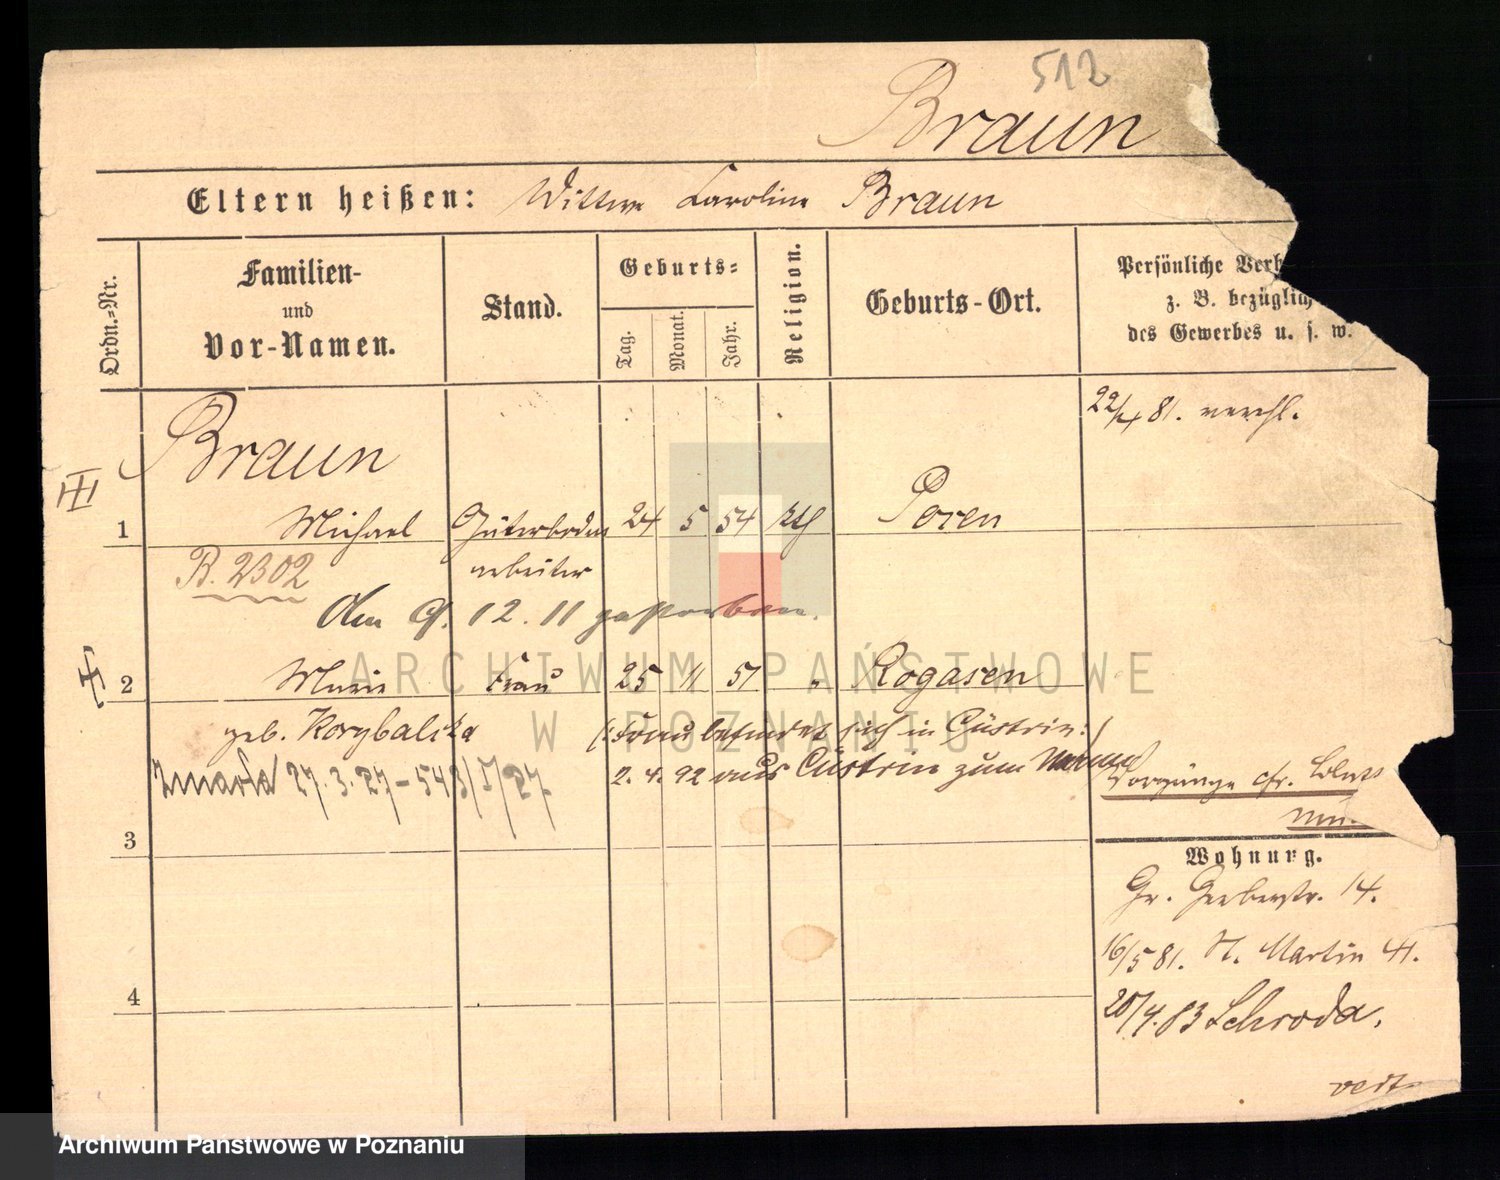 512
Braun
Eltern heißen: Wittwe Caroline Braun
Ordn.-Nr.
Familien-
und
Vor-Namen.
Stand.
Geburts-
Tag.
Monat.
Jahr.
Religion.
Geburts-Ort.
Persönliche Verh
z. B. bezüglich
des Gewerbes u. s. w.
22/4 81. verehl.
Braun
1 Michael Güterboden 24 5 54 kth Posen
arbeiter
B. 2302
Am 9. 12. 11 gestorben.
2 Marie Frau 25 11 51 " Rogasen
geb. Korybalska
(: Frau befindet sich in Cüstrin :)
2. 4. 92 aus Cüstrin zum Manne
Zmarła 27. 3. 27 - 543/I/27
Vorgänge cfr.
3
Wohnung.
Gr. Gerberstr. 14.
16/5 81. St. Martin 41.
4
20/4. 83 Schroda.
vert
ARCHIWUM PAŃSTWOWE
W POZNANIU
Archiwum Państwowe w Poznaniu